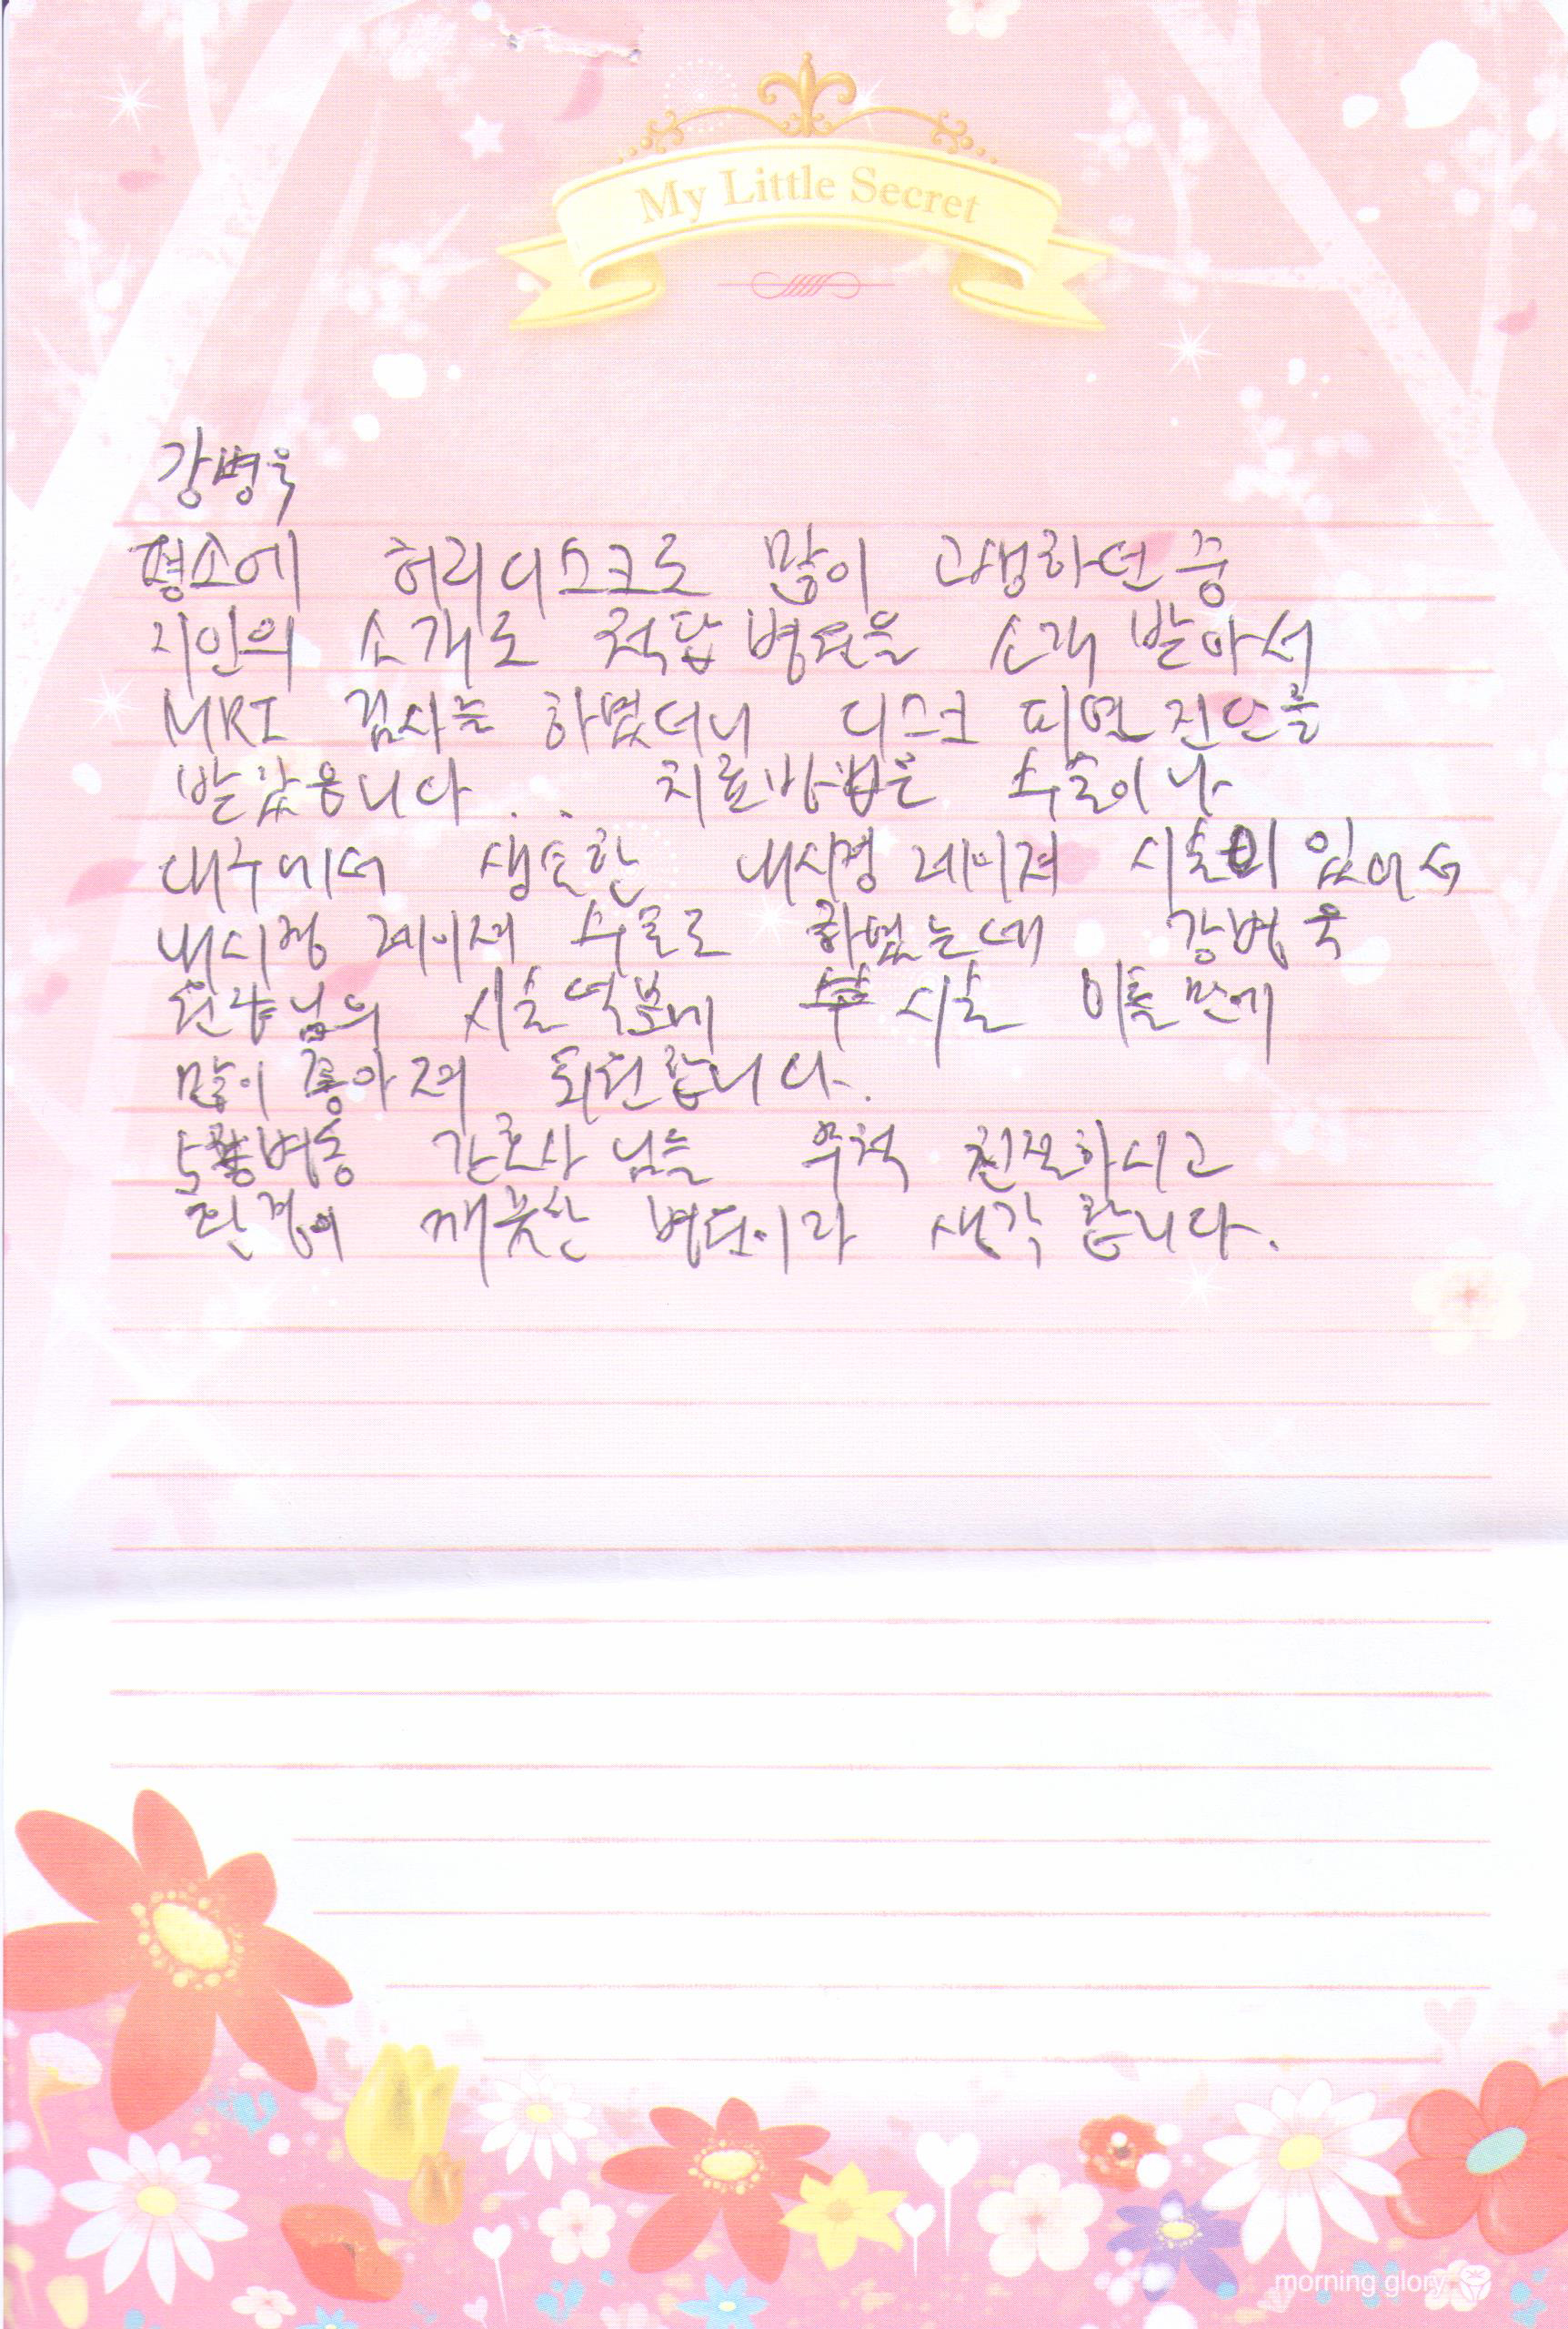 My Little Secret
강병욱
평소에 허리디스크로 많이 고생하던 중
지인의 소개로 척탑병원을 소개 받아서
MRI 검사를 하였더니 디스크 피열 진단을
받았읍니다... 치료방법은 수술이나
대구에서 생소한 내시경 레이져 시술이 있어서
내시경 레이져 수술로 하였는데 강병욱
원장님의 시술 덕분에 시술 이틀만에
많이 좋아져 퇴원합니다.
5병동 간호사님들 무척 친절하시고
환경이 깨끗한 병원이라 생각합니다.
morning glory